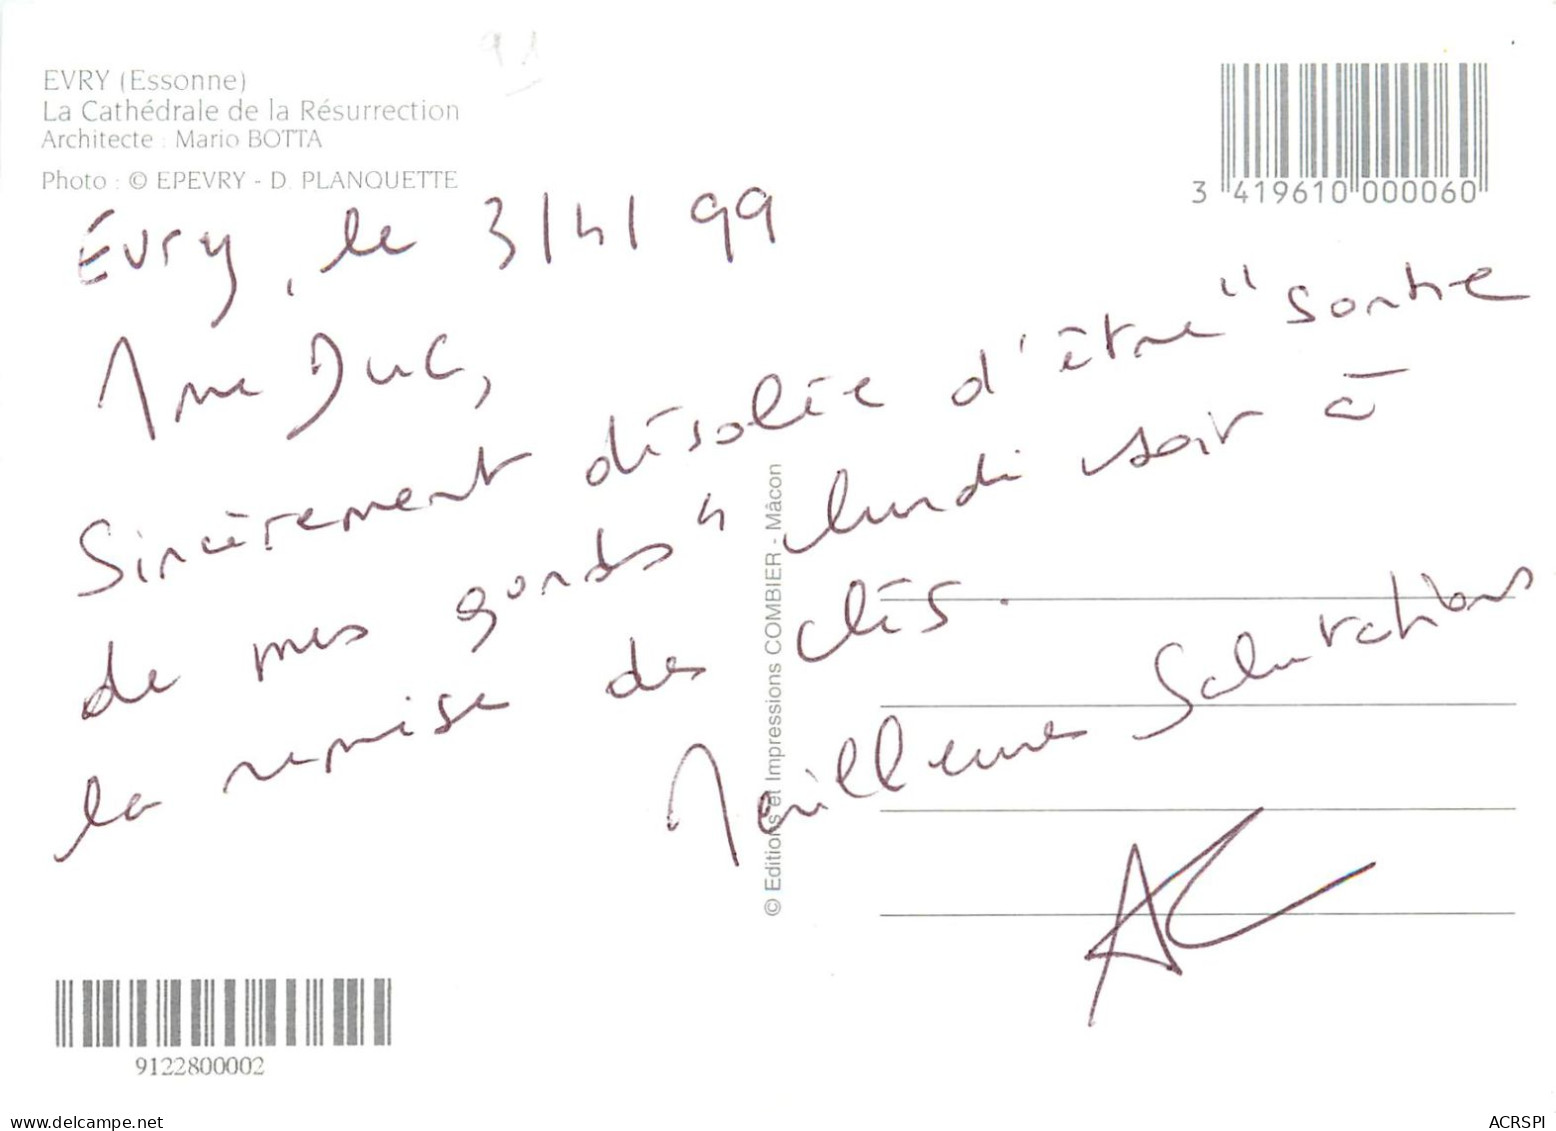 91
EVRY (Essonne)
La Cathédrale de la Résurrection
Architecte : Mario BOTTA
Photo : © EPEVRY - D. PLANQUETTE
3 419610 000060
Évry, le 3/4/99
Mme Duc,
Sincèrement désolée d'être "sortie
de mes gonds" lundi soir à
la remise des clés.
Meilleures Salutations
AC
© Editions et Impressions COMBIER - Mâcon
9122800002
www.delcampe.net
ACRSPI